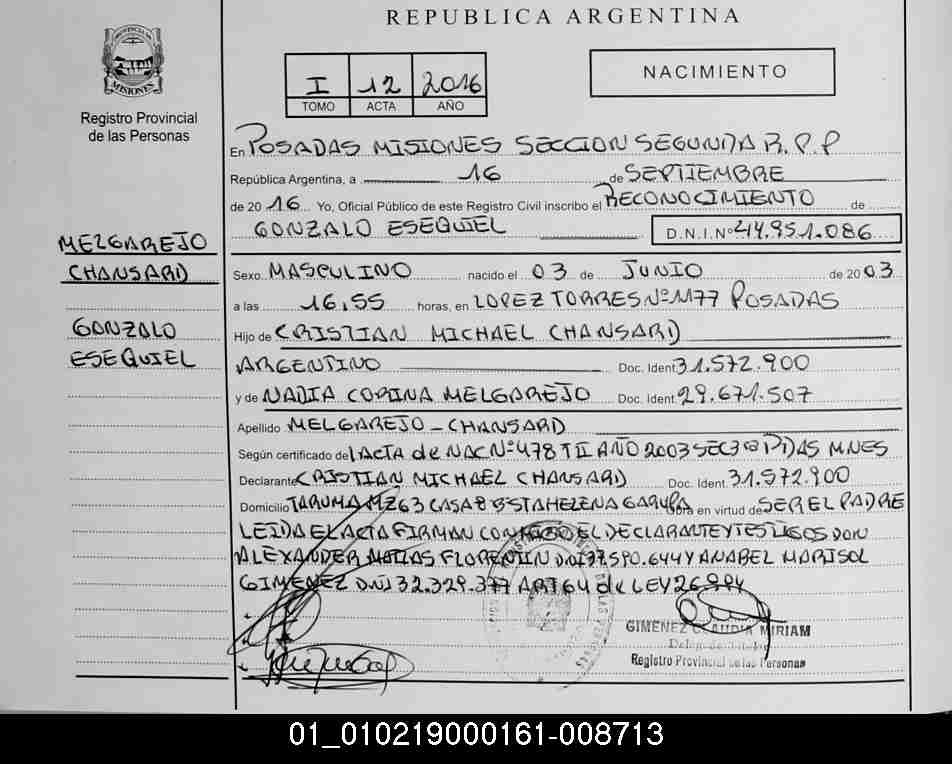 REPUBLICA ARGENTINA
PROVINCIA DE
MISIONES
Registro Provincial
de las Personas
I 12 2016
TOMO ACTA AÑO
NACIMIENTO
En POSADAS MISIONES SECCION SEGUNDA R.P.P
República Argentina, a 16 de SEPTIEMBRE
de 2016 Yo, Oficial Público de este Registro Civil inscribo el RECONOCIMIENTO de
GONZALO ESEQUIEL D.N.I.Nº 44.951.086
MELGAREJO
CHANSARD
GONZALO
ESEQUIEL
Sexo MASCULINO nacido el 03 de JUNIO de 2003
a las 16,55 horas, en LOPEZ TORRES Nº 1177 POSADAS
Hijo de CRISTIAN MICHAEL CHANSARD
ARGENTINO Doc. Ident 31.572.900
y de NADIA CORINA MELGAREJO Doc. Ident. 29.671.507
Apellido MELGAREJO-CHANSARD
Según certificado de ACTA de NAC Nº 478 T II AÑO 2003 SEC 3 @ PDAS MNES
Declarante CRISTIAN MICHAEL CHANSARD Doc. Ident. 31.572.900
Domicilio TARUMA MZ 63 CASA 8 B STA HELENA GARUPA Obra en virtud de SER EL PADRE
LEIDA EL ACTA FIRMAN CONMIGO EL DECLARANTE Y TESTIGOS DON
ALEXANDER MATIAS FLORENTIN DNI 37.590.644 Y ANABEL MARISOL
GIMENEZ DNI 32.329.377 ART 64 de LEY 26.994
GIMENEZ CLAUDIA MIRIAM
Registro Provincial de las Personas
01_010219000161-008713